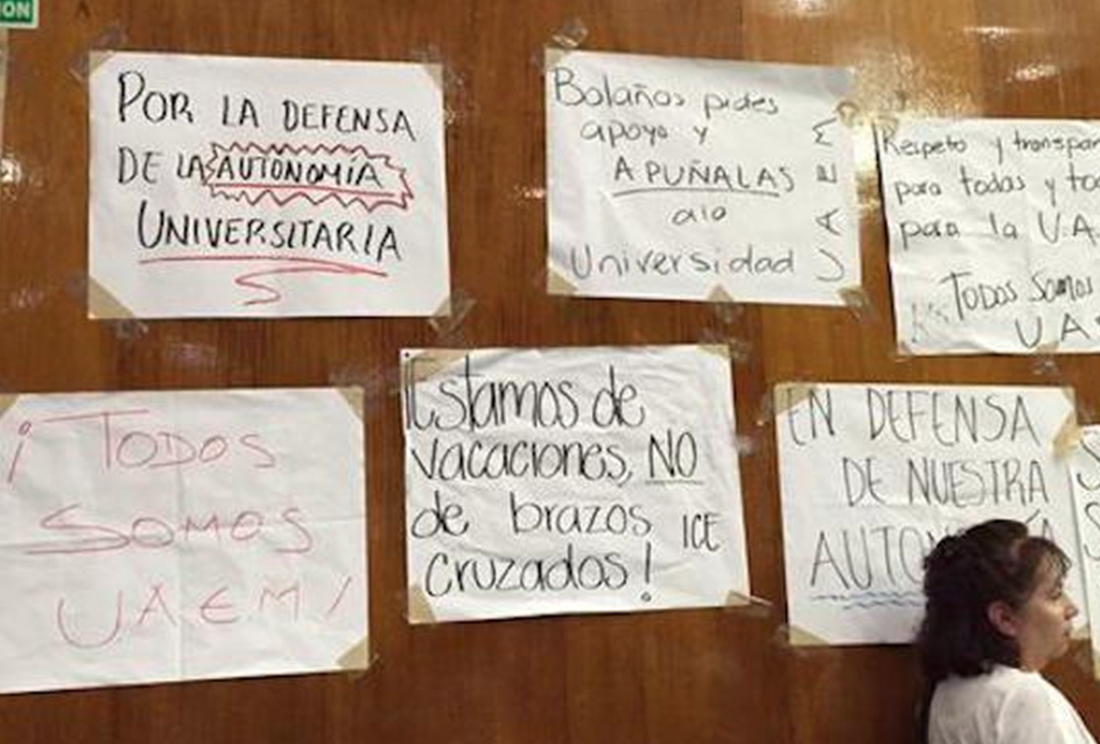 POR LA DEFENSA
DE LA AUTONOMÍA
UNIVERSITARIA
Bolaños pides
apoyo y
APUÑALAS
a la
Universidad
UAEM
Respeto y
para todas y
para la
TODOS Somos
¡TODOS
SOMOS
UAEM!
¡Estamos de
vacaciones, NO
de brazos
cruzados!
ICE
EN DEFENSA
DE NUESTRA